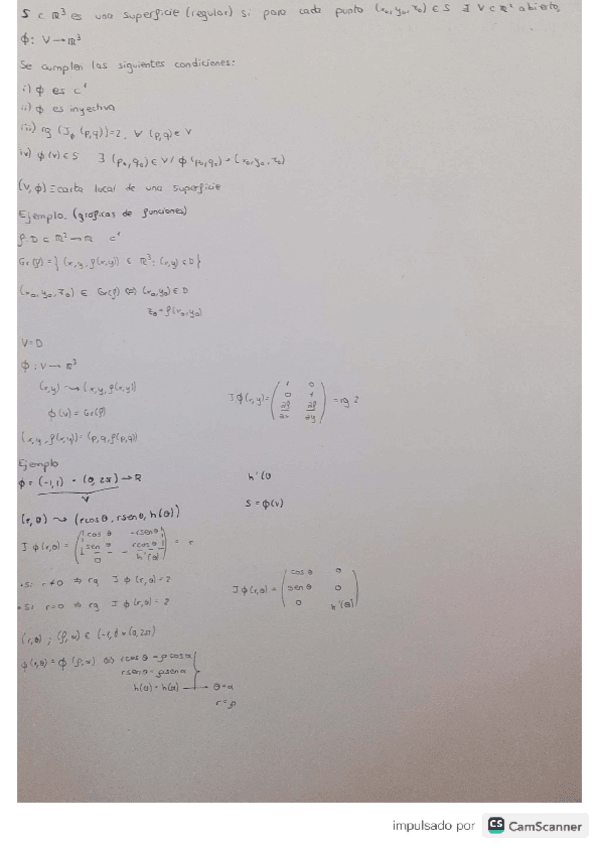 S ⊂ ℝ³ es una superficie (regular) si para cada punto (x₀, y₀, z₀) ∈ S ∃ V ⊂ ℝ² abierto,
ϕ: V → ℝ³
Se cumplen las siguientes condiciones:
i) ϕ es C¹
ii) ϕ es inyectiva
iii) rg (J_ϕ (p,q)) = 2, ∀ (p,q) ∈ V
iv) ϕ(V) ⊂ S ∃ (p₀,q₀) ∈ V / ϕ(p₀,q₀) = (x₀, y₀, z₀)
(V, ϕ) = carta local de una superficie
Ejemplo. (gráficas de funciones)
f: D ⊂ ℝ² → ℝ C¹
Gr(f) = { (x,y, f(x,y)) ∈ ℝ³: (x,y) ∈ D}
(x₀, y₀, z₀) ∈ Gr(f) ⇔ (x₀,y₀) ∈ D
z₀ = f(x₀,y₀)
V = D
ϕ: V → ℝ³
(x,y) ⇝ (x, y, f(x,y))
Jϕ(x,y) = ( 1 0 / 0 1 / ∂f/∂x ∂f/∂y ) = rg 2
ϕ(V) = Gr(f)
(x,y, f(x,y)) = (p,q, f(p,q))
Ejemplo
ϕ = (-1,1) × (0,2π) → ℝ h'(θ
V S = ϕ(V)
(r,θ) ⇝ (rcosθ, rsenθ, h(θ))
Jϕ(r,θ) = ( cosθ -rsenθ / senθ rcosθ / 0 h'(θ) ) =
• Si r≠0 ⇒ rg Jϕ(r,θ) = 2
Jϕ(r,θ) = ( cosθ 0 / senθ 0 / 0 h'(θ) )
• Si r=0 ⇒ rg Jϕ(r,θ) = 2
(r,θ) ; (ρ,α) ∈ (-1,1) × (0,2π)
ϕ(r,θ) = ϕ(ρ,α) ⇔ rcosθ = ρcosα
rsenθ = ρsenα
h(θ) = h(α) → θ=α
r=ρ
impulsado por CS CamScanner